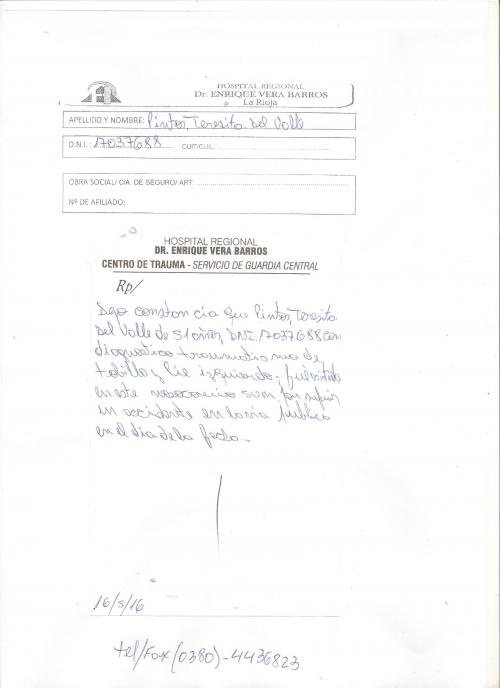 HOSPITAL REGIONAL
Dr. ENRIQUE VERA BARROS
La Rioja
APELLIDO Y NOMBRE: Pintos, Teresita Del Valle
D.N.I.: 17037688 CUIT/CUIL:
OBRA SOCIAL/ CIA. DE SEGURO/ ART:
Nº DE AFILIADO:
HOSPITAL REGIONAL
DR. ENRIQUE VERA BARROS
CENTRO DE TRAUMA - SERVICIO DE GUARDIA CENTRAL
Rp/
Dejo constancia que Pintos, Teresita
del Valle de 51 años, DNI. 17037688 con
diagnostico traumatismo de
tobillo y pie izquierdo;
en este nosocomio por sufrir
un accidente en la via publica
en el dia de la fecha.-
16/5/16
tel/Fax (0380)-4436823